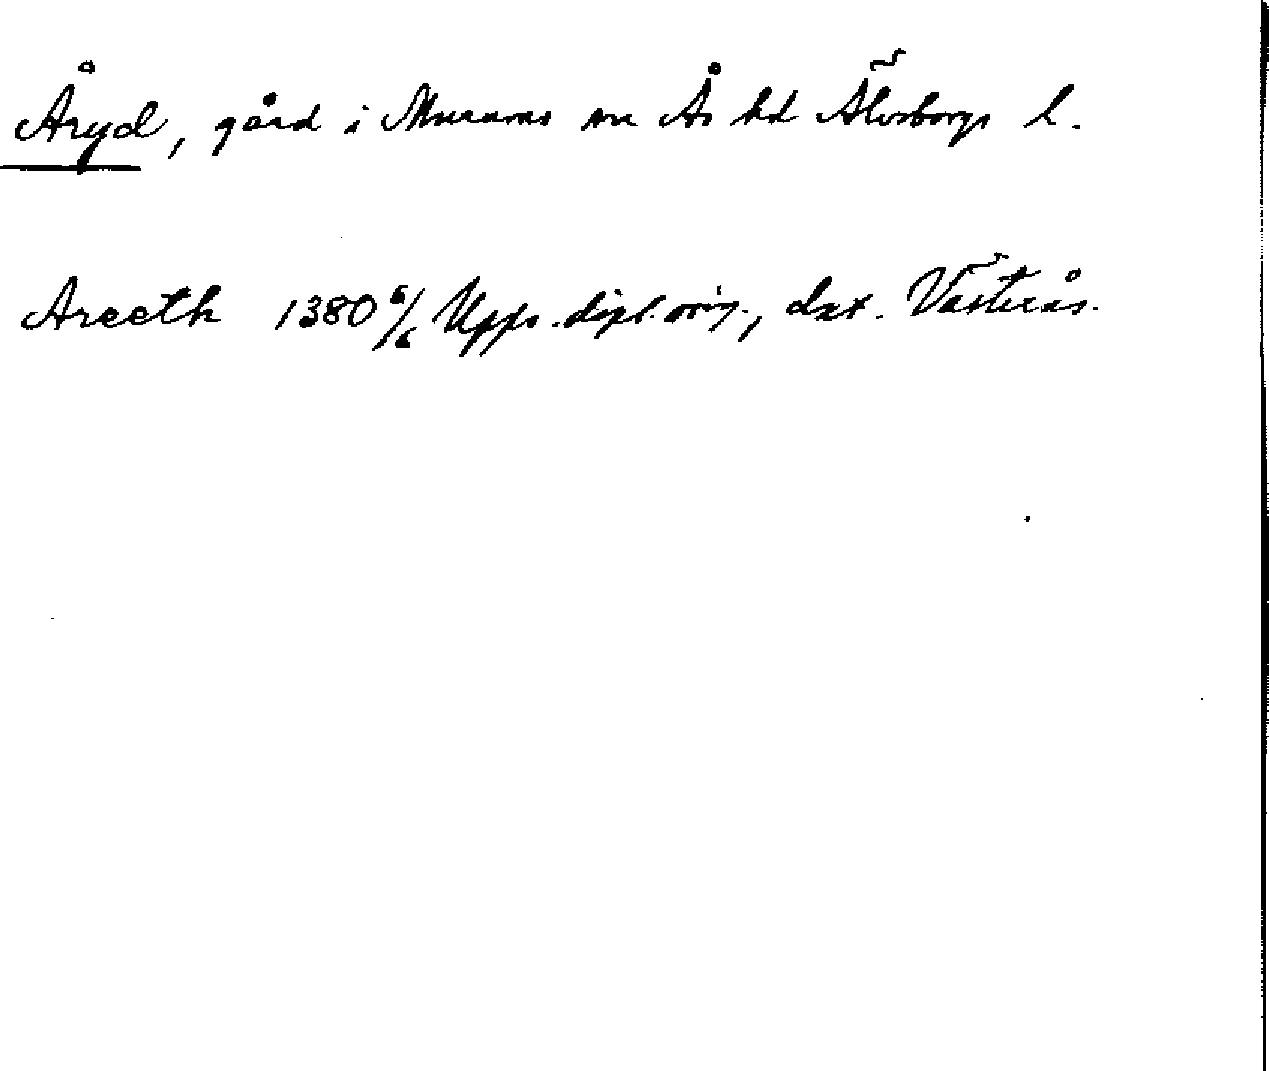 Åryd, gård i Murums sn Ås hd Älvsborgs l.
Areeth 1380 6/6 Upps. dipl. orig., dat. Västerås.